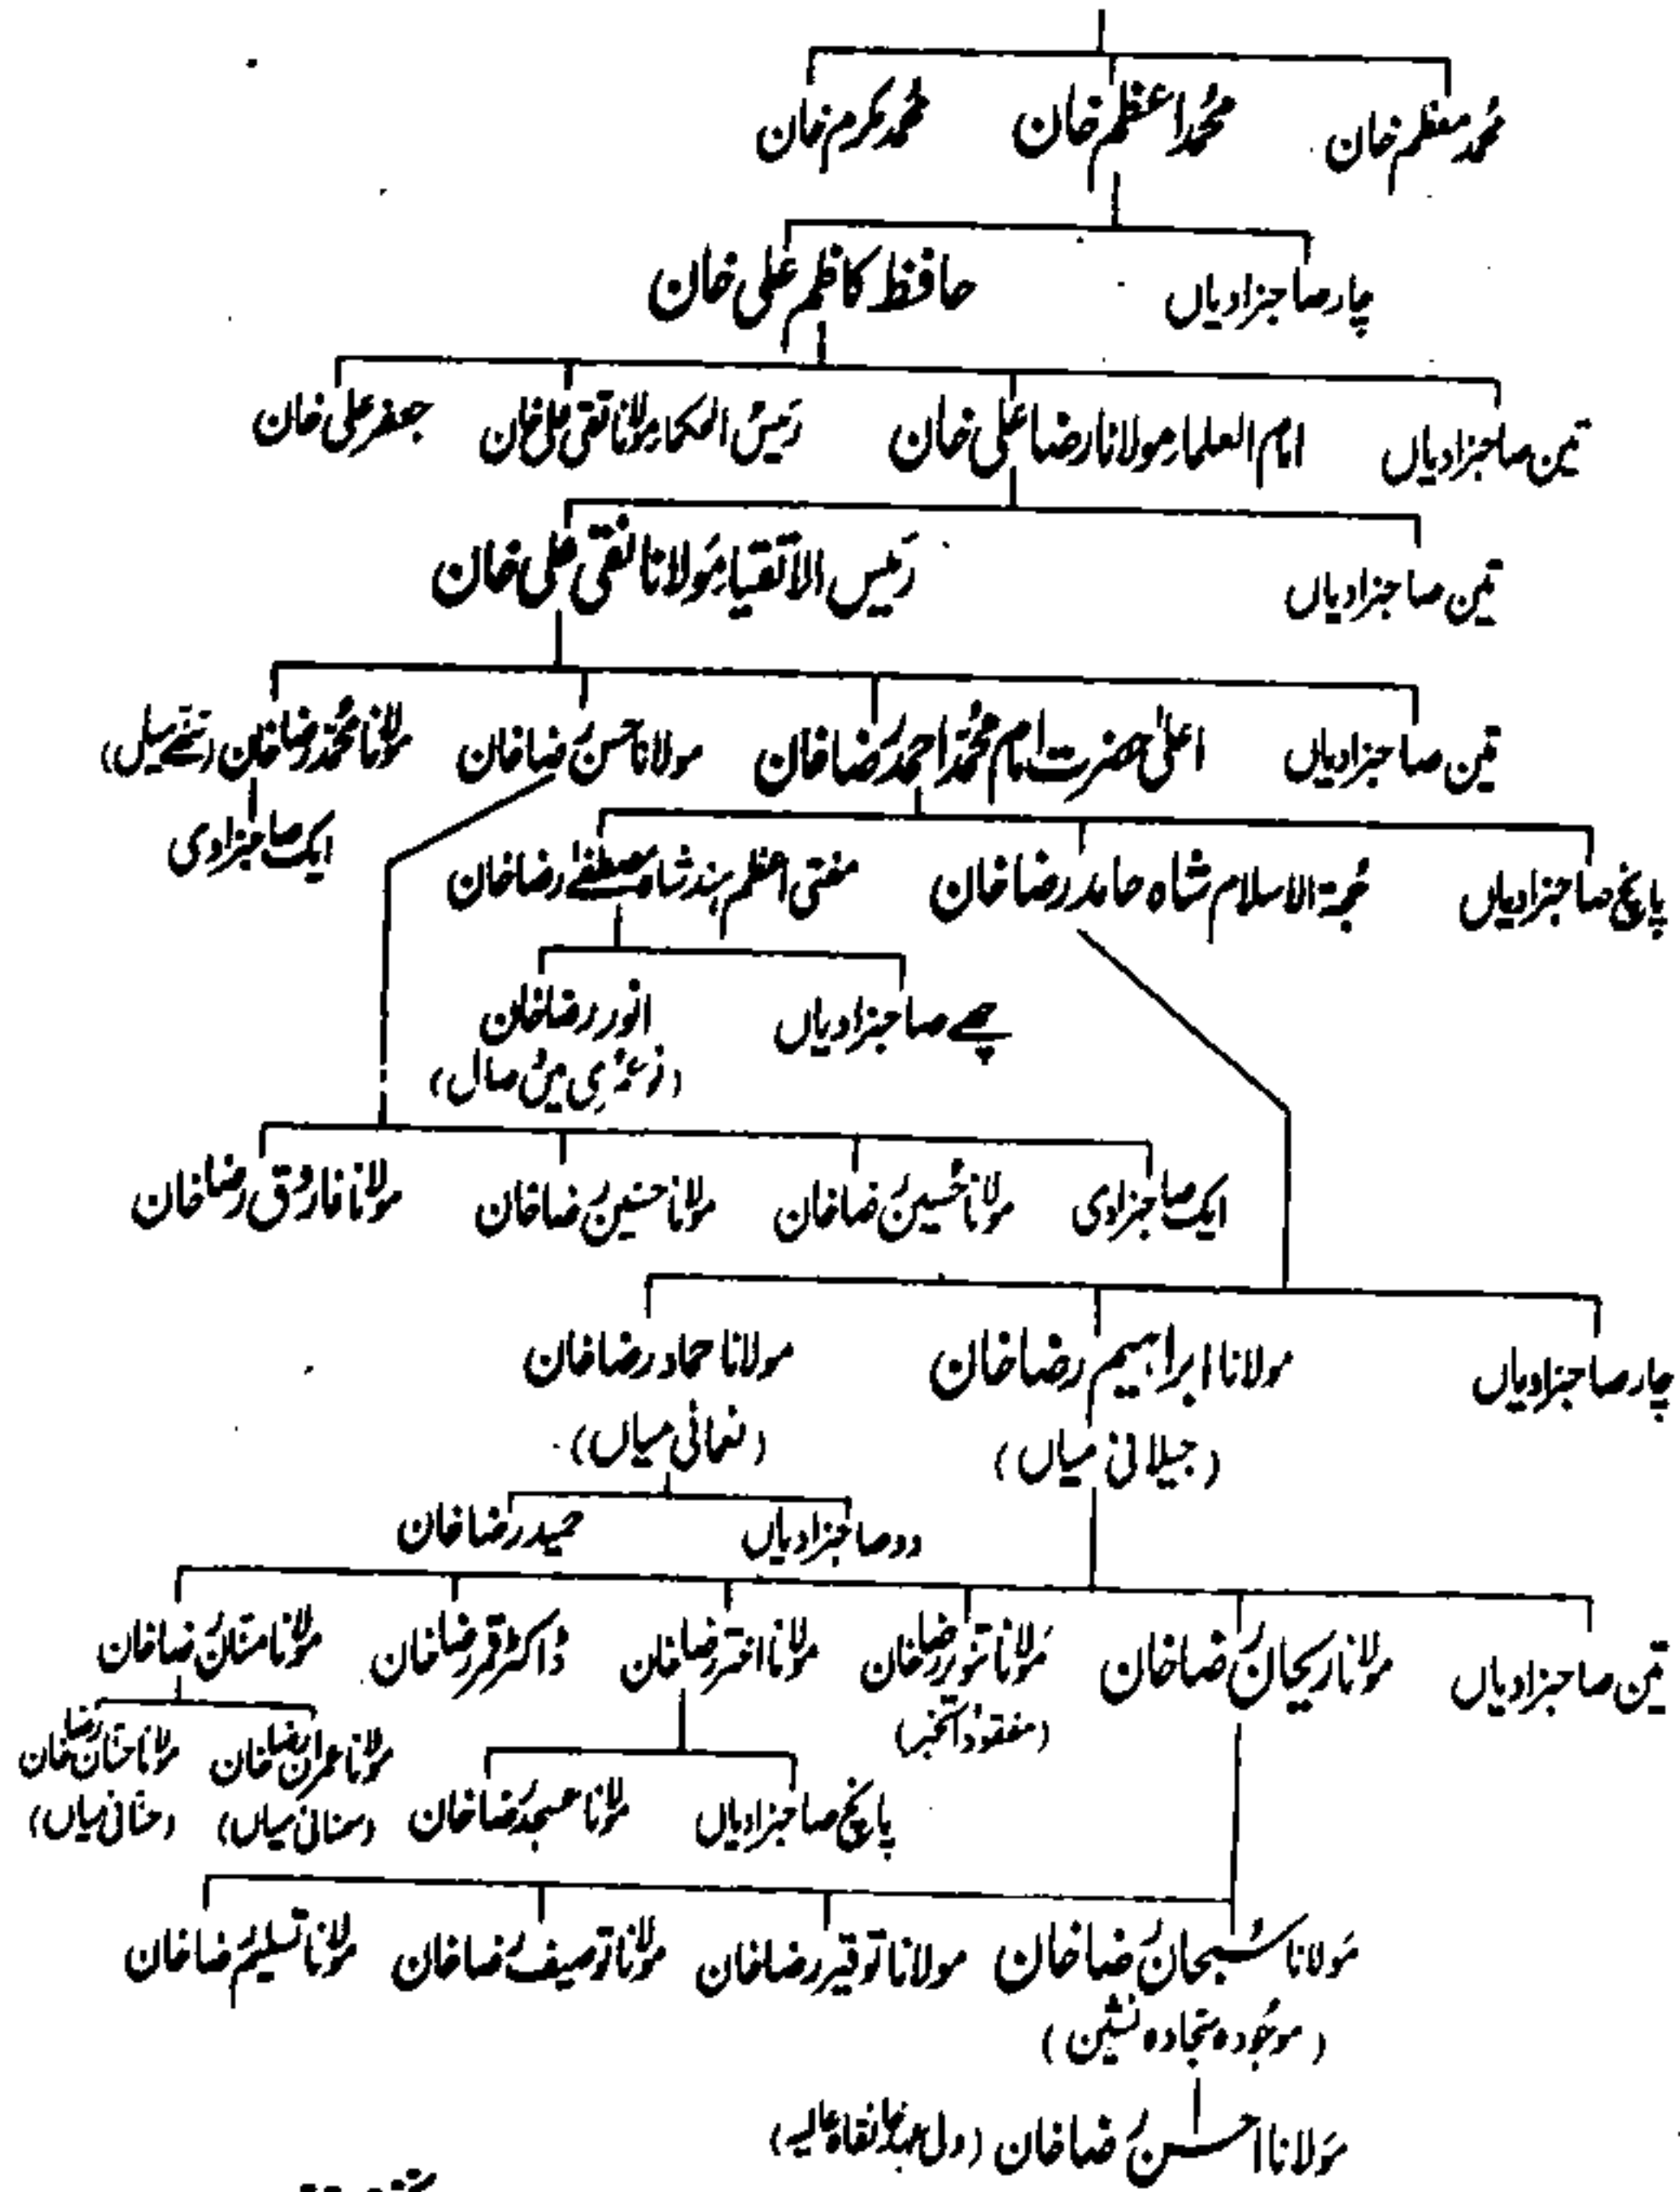 محمد معظم خان محمد اعظم خان محمد مکرم خان
چار صاحبزادیاں حافظ کاظم علی خان
تین صاحبزادیاں امام العلماء مولانا رضا علی خان رئیس الحکماء مولانا تقی علی خان جعفر علی خان
تین صاحبزادیاں رئیس الاتقیاء مولانا نقی علی خان
تین صاحبزادیاں اعلیٰ حضرت امام محمد احمد رضا خان مولانا حسن رضا خان مولانا محمد رضا خان (ننھے میاں)
ایک صاحبزادی
پانچ صاحبزادیاں حجۃ الاسلام شاہ حامد رضا خان مفتی اعظم ہند شاہ مصطفےٰ رضا خان
چھے صاحبزادیاں انور رضا خان
ایک صاحبزادی مولانا حسین رضا خان مولانا حسنین رضا خان مولانا فاروق رضا خان
چار صاحبزادیاں مولانا ابراہیم رضا خان مولانا حماد رضا خان
(جیلانی میاں) (نعمانی میاں)
دو صاحبزادیاں حمید رضا خان
تین صاحبزادیاں مولانا ریحان رضا خان مولانا تنویر رضا خان مولانا اختر رضا خان ڈاکٹر قمر رضا خان مولانا منان رضا خان
(مفقود الخبر)
پانچ صاحبزادیاں مولانا عسجد رضا خان مولانا عمران رضا خان مولانا حنان رضا خان
(سمنانی میاں) (حنانی میاں)
مولانا سبحان رضا خان مولانا توقیر رضا خان مولانا توصیف رضا خان مولانا تسلیم رضا خان
(موجودہ سجادہ نشین)
مولانا احسن رضا خان (ولی عہد خانقاہ عالیہ)